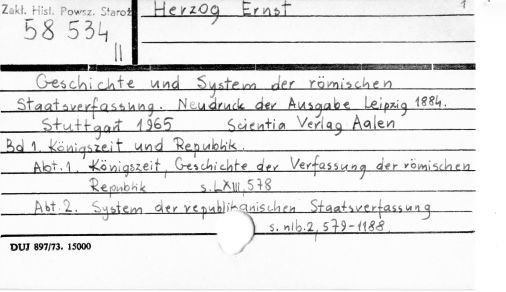 Zakł. Hist. Powsz. Staroż
58 534
II
Herzog Ernst
1
Geschichte und System der römischen
Staatsverfassung. Neudruck der Ausgabe Leipzig 1884.
Stuttgart 1965 Scientia Verlag Aalen
Bd 1. Königszeit und Republik.
Abt. 1. Königszeit, Geschichte der Verfassung der römischen
Republik s. LXIII, 578
Abt. 2. System der republikanischen Staatsverfassung
s. nlb. 2, 579-1188
DUJ 897/73. 15000